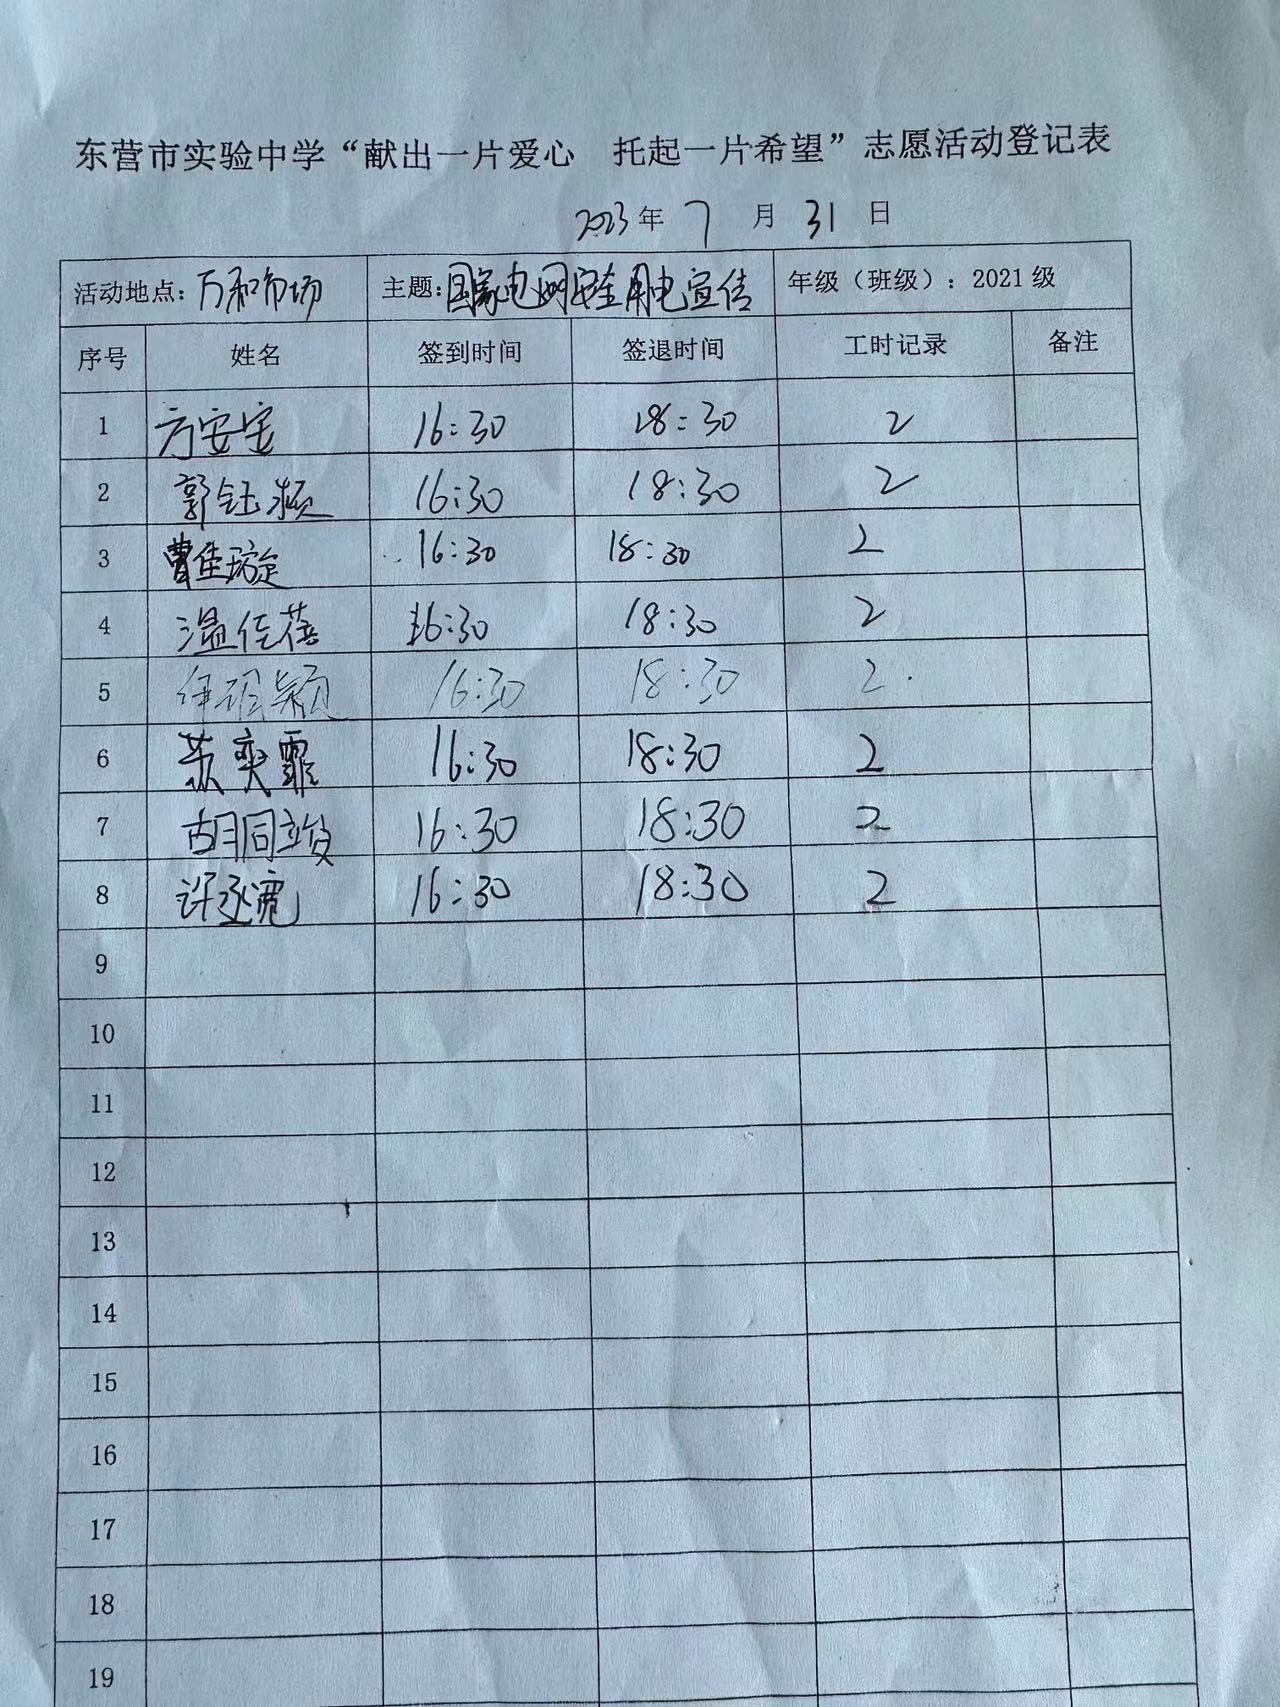 东营市实验中学“献出一片爱心 托起一片希望”志愿活动登记表
2023年 7 月 31 日
活动地点：万和市场 主题：国家电网安全用电宣传 年级（班级）：2021级
序号 姓名 签到时间 签退时间 工时记录 备注
1 方安安 16:30 18:30 2
2 郭钰频 16:30 18:30 2
3 曹佳璇 16:30 18:30 2
4 温佳蓓 16:30 18:30 2
5 颖 16:30 18:30 2
6 苏奕霏 16:30 18:30 2
7 胡同 16:30 18:30 2
8 许丞宽 16:30 18:30 2
9
10
11
12
13
14
15
16
17
18
19